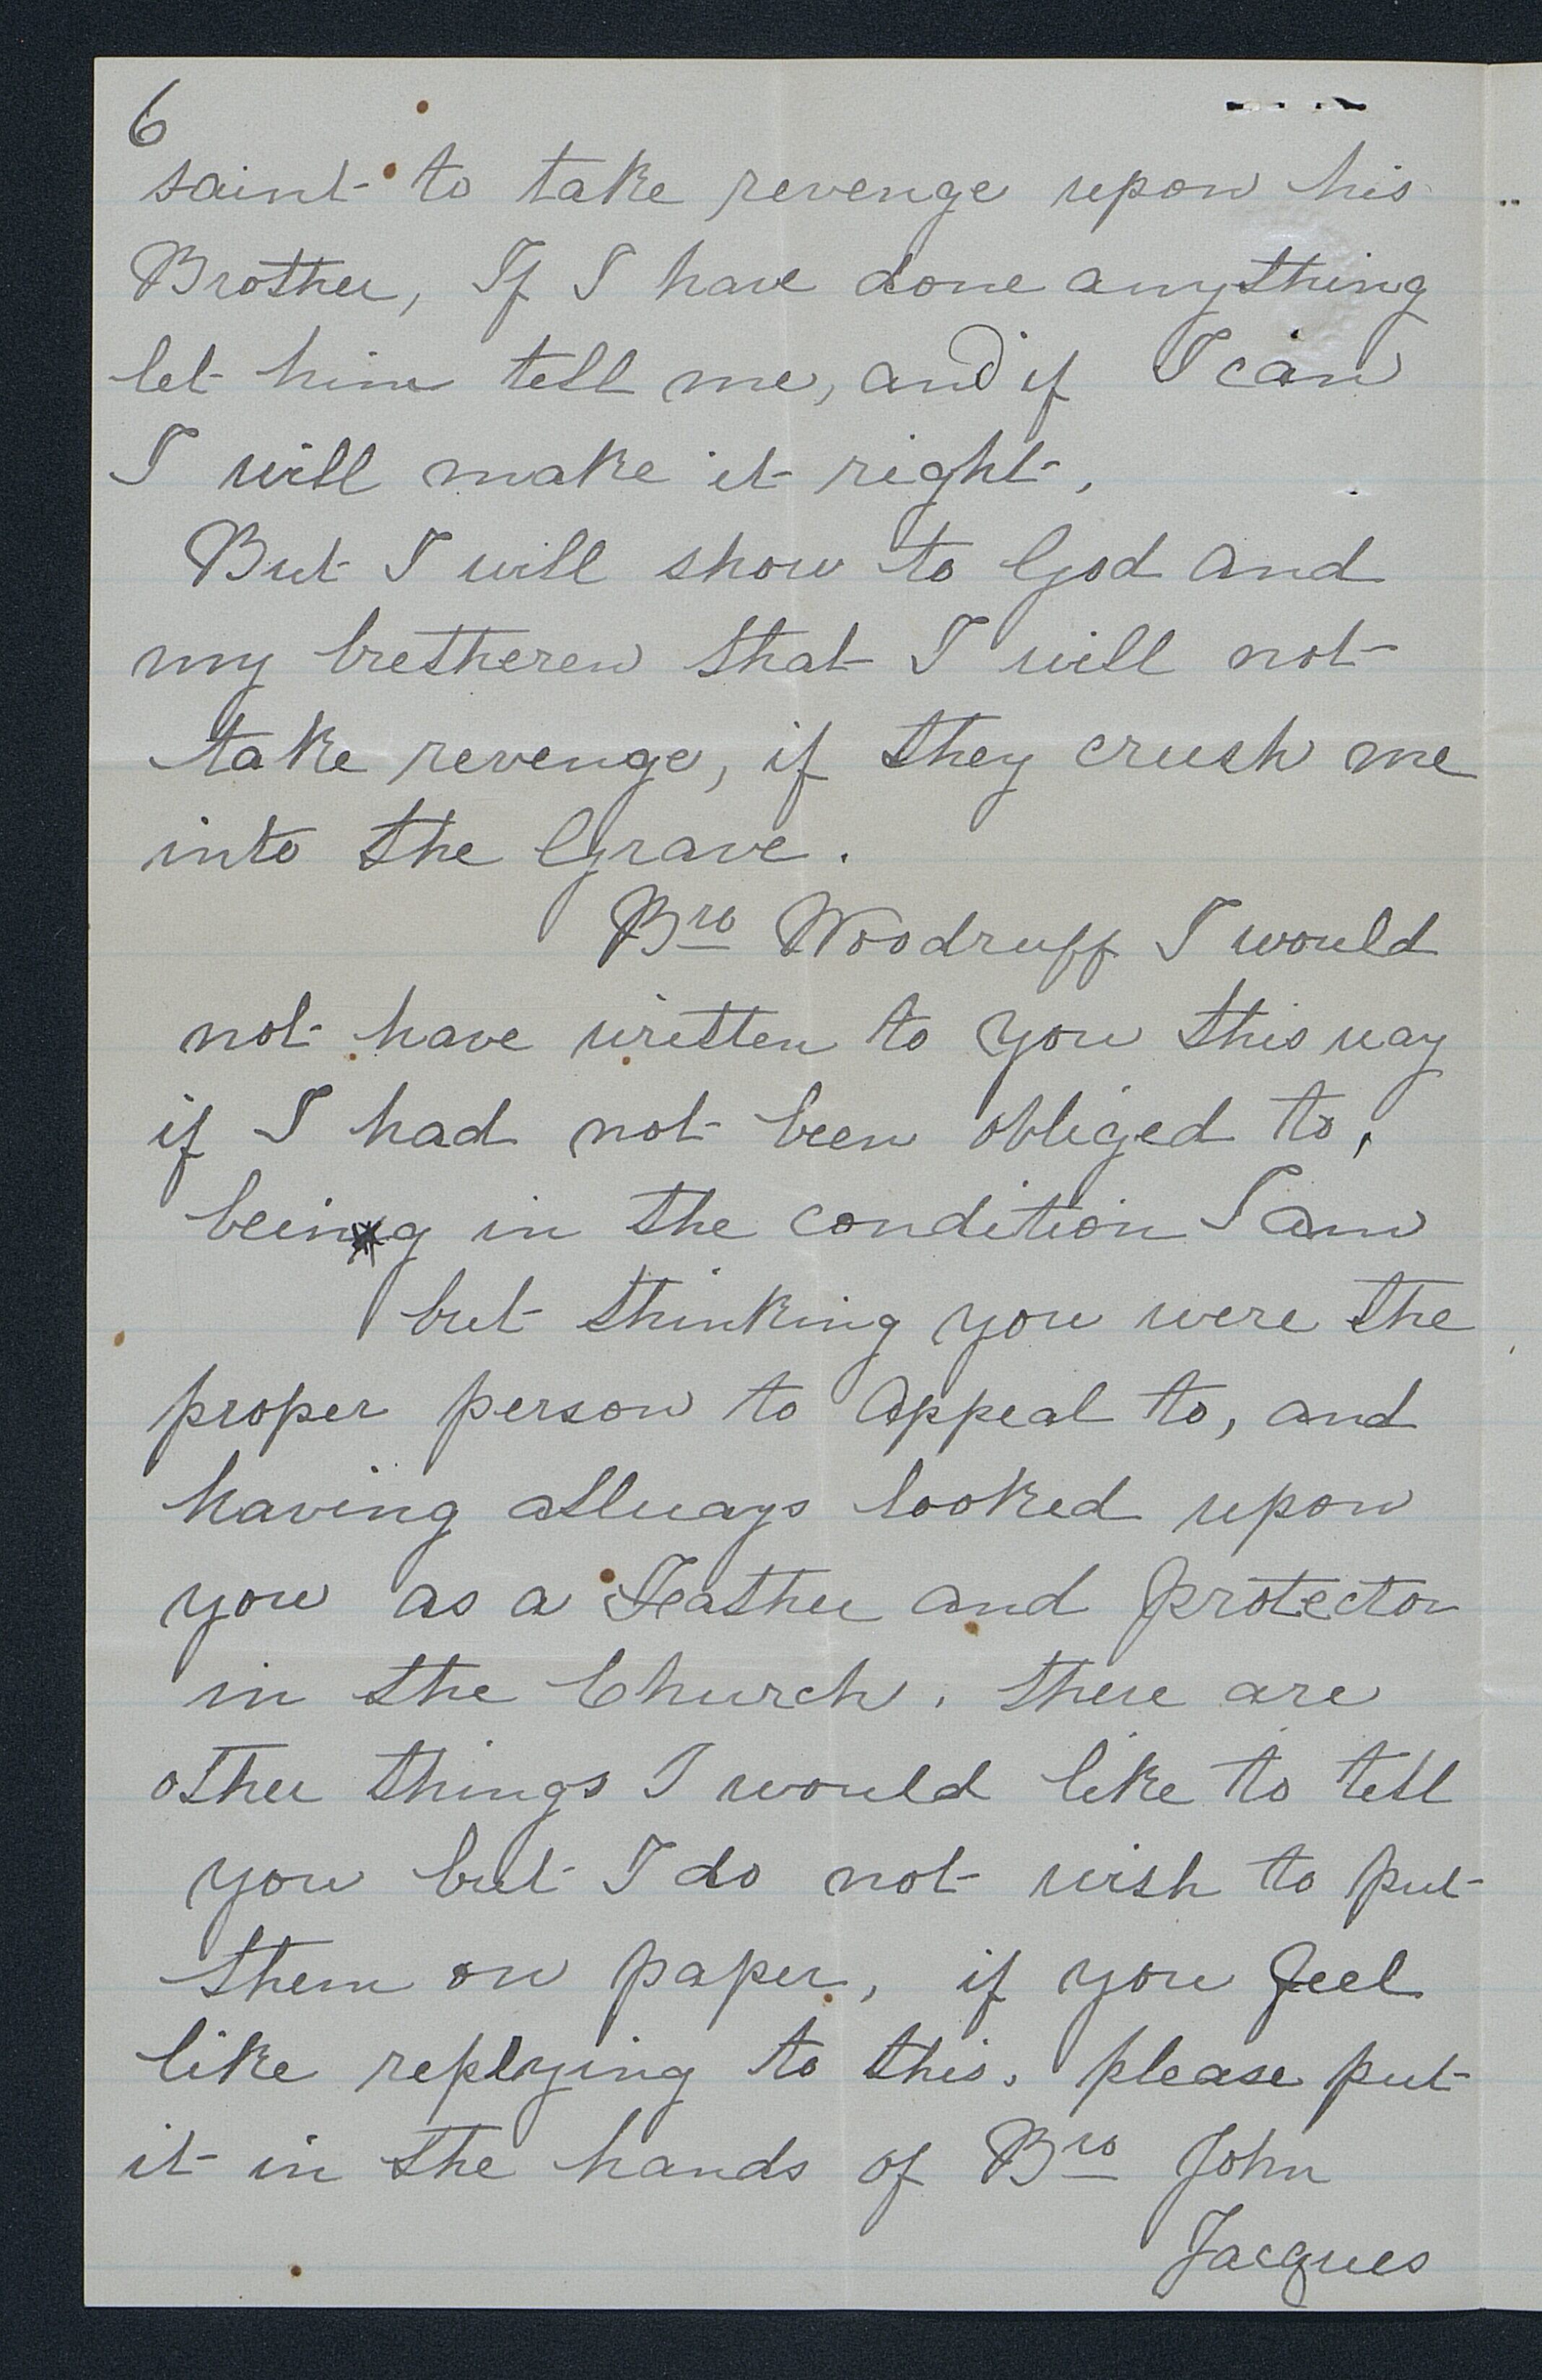 6
saint to take revenge upon his
Brother, If I have done anything
let him tell me, and if I can
I will make it right,
But I will show to God and
my bretheren that I will not
take revenge, if they crush me
into the Grave.
Bro Woodruff I would
not have written to you this way
if I had not been obliged to,
being in the condition I am
but thinking you were the
proper person to appeal to, and
having allways looked upon
you as a Father and protector
in the Church. there are
other things I would like to tell
you but I do not wish to put
them on paper, if you feel
like replying to this. please put
it in the hands of Bro John
Jacques